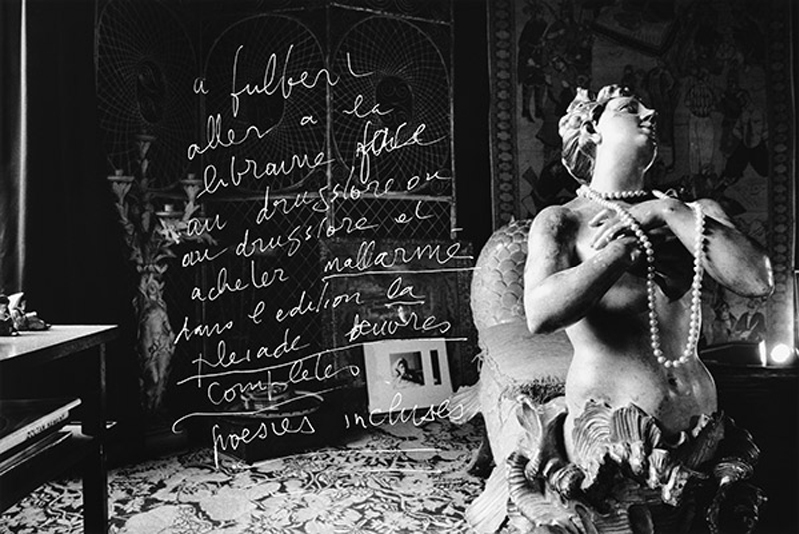 a fulbert
aller a la
librairie face
au drugstore ou
au drugstore et
acheter mallarmé
dans l edition la
pleiade oeuvres
completes
poesies incluses